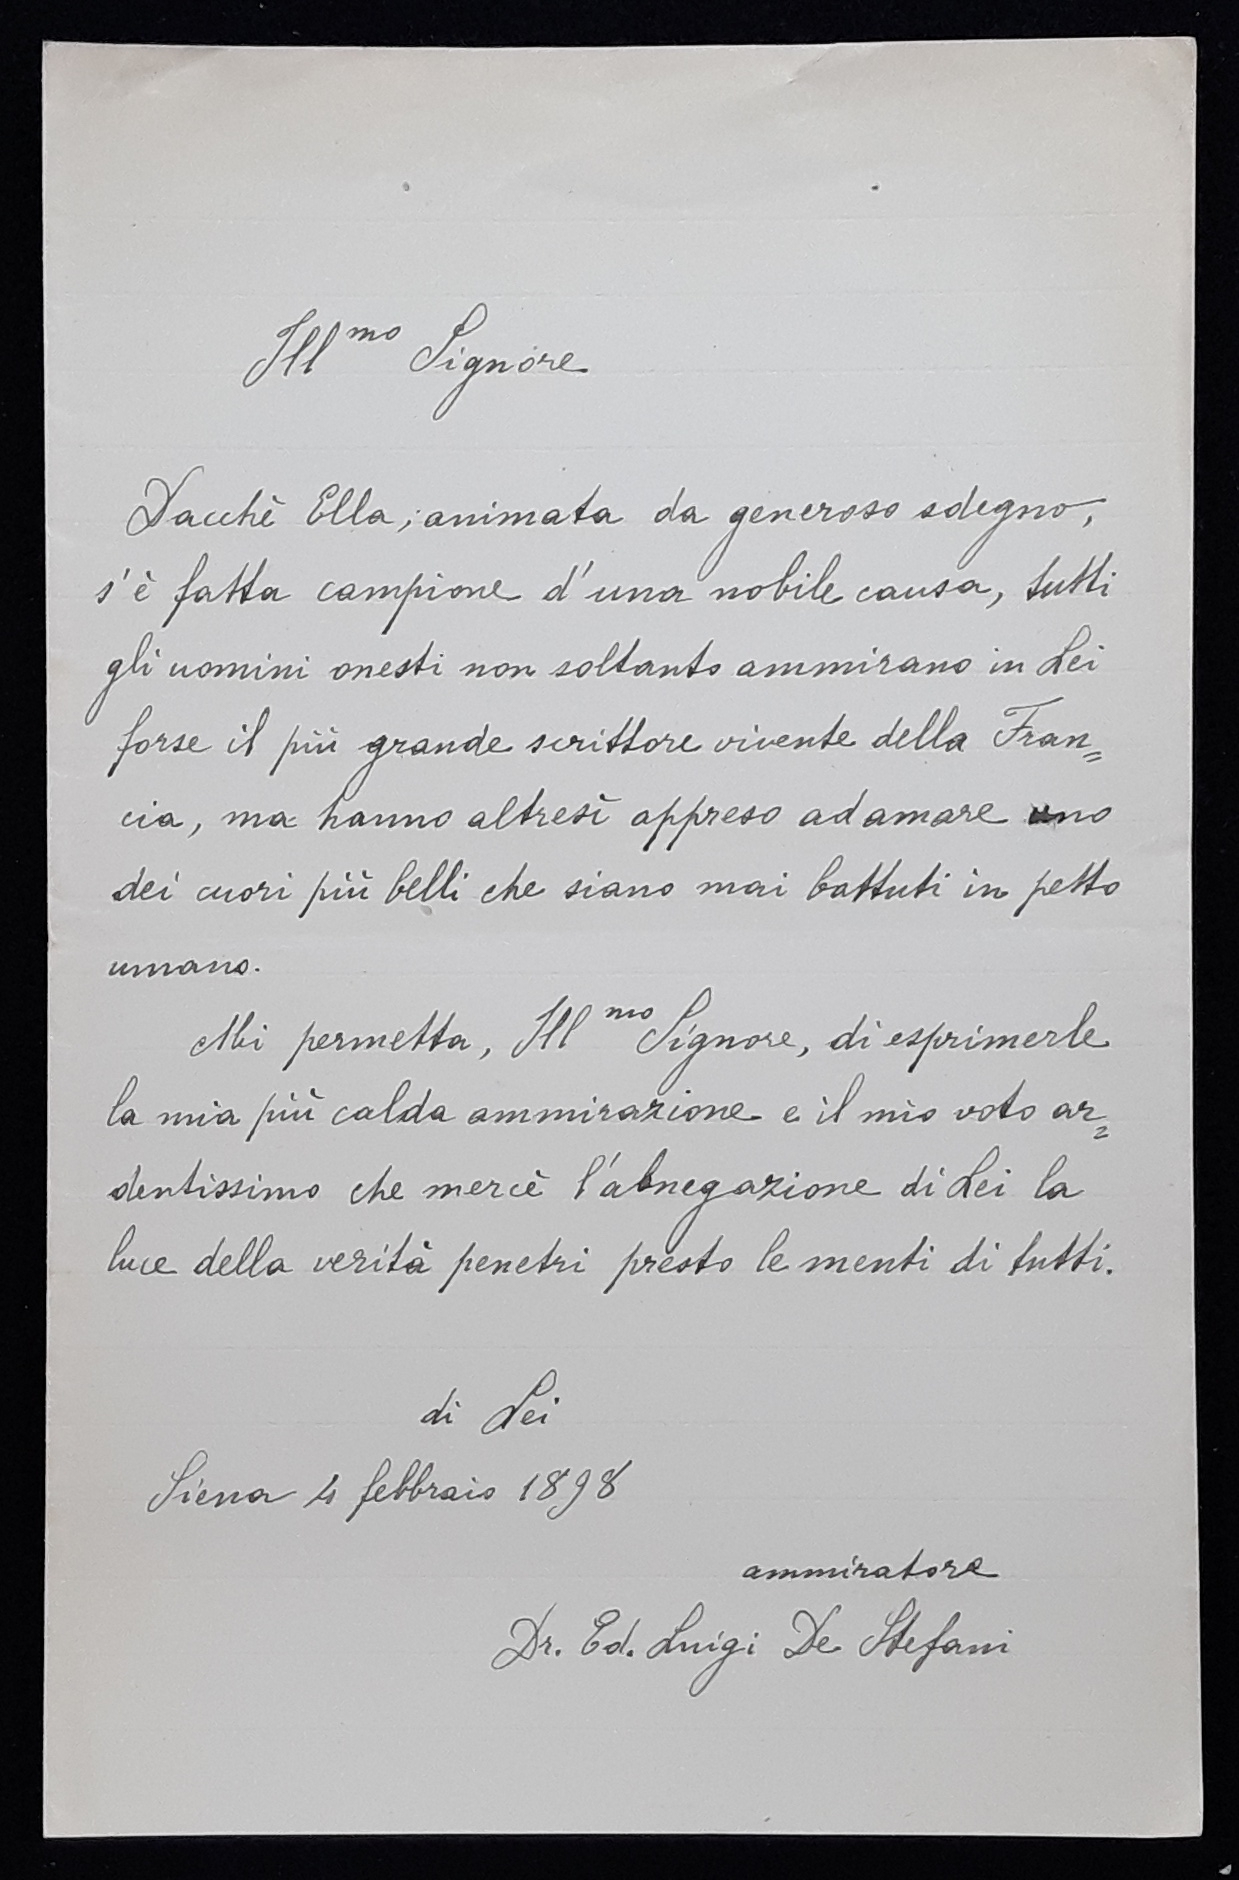 Ill^mo Signore
Dacchè Ella, animata da generoso sdegno,
s'è fatta campione d'una nobile causa, tutti
gli uomini onesti non soltanto ammirano in Lei
forse il più grande scrittore vivente della Fran=
cia, ma hanno altresì appreso ad amare uno
dei cuori più belli che siano mai battuti in petto
umano.
Mi permetta, Ill^mo Signore, di esprimerle
la mia più calda ammirazione e il mio voto ar=
dentissimo che mercè l'abnegazione di Lei la
luce della verità penetri presto le menti di tutti.
di Lei
Siena 4 febbraio 1898
ammiratore
Dr. Ed. Luigi De Stefani